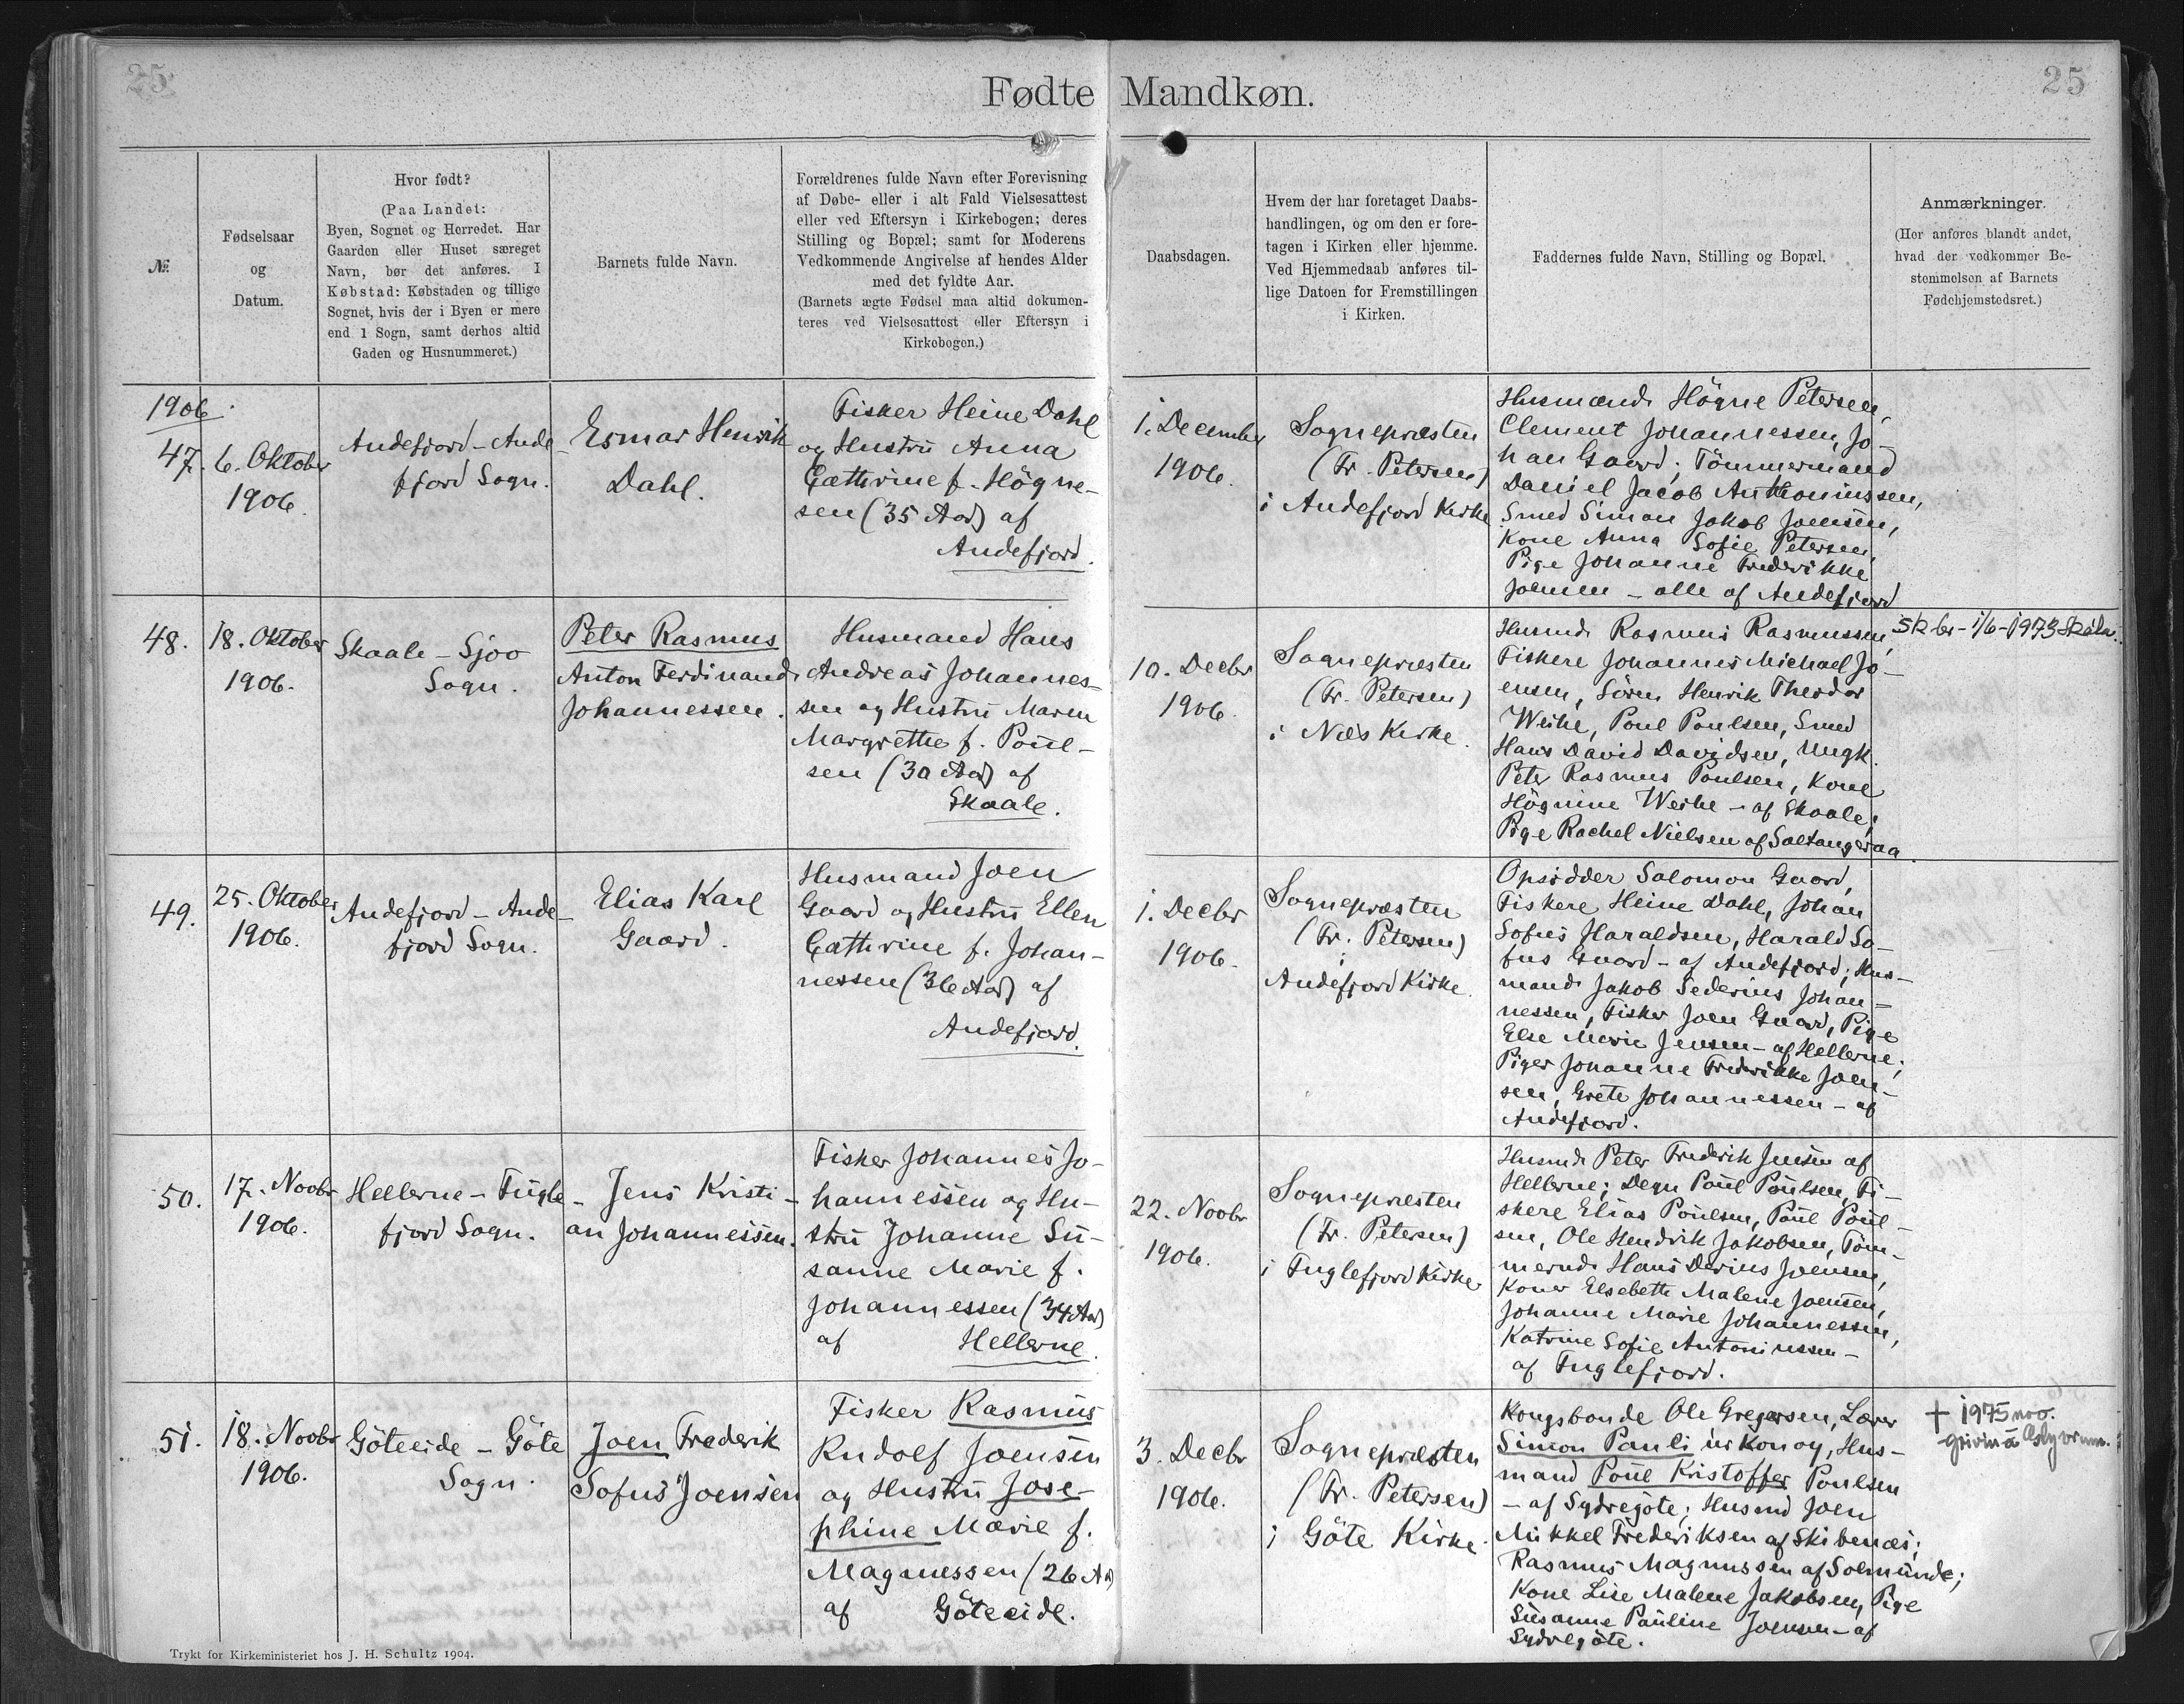 25
Fødte Mandkøn.
25
№
Fødselsaar
og
Datum.
Hvor født?
(Paa Landet:
Byen, Sognet og Herredet. Har
Gaarden eller Huset særeget
Navn, bør det anføres. I
Købstad: Købstaden og tillige
Sognet, hvis der i Byen er mere
end 1 Sogn, samt derhos altid
Gaden og Husnummeret.)
Barnets fulde Navn.
Forældrenes fulde Navn efter Forevisning
af Døbe- eller i alt Fald Vielsesattest
eller ved Eftersyn i Kirkebogen; deres
Stilling og Bopæl; samt for Moderens
Vedkommende Angivelse af hendes Alder
med det fyldte Aar.
(Barnets ægte Fødsel maa altid dokumen-
teres ved Vielsesattest eller Eftersyn i
Kirkebogen.)
Daabsdagen.
Hvem der har foretaget Daabs-
handlingen, og om den er fore-
tagen i Kirken eller hjemme.
Ved Hjemmedaab anføres til-
lige Datoen for Fremstillingen
i Kirken.
Faddernes fulde Navn, Stilling og Bopæl.
Anmærkninger.
(Her anføres blandt andet,
hvad der vedkommer Be-
stemmelsen af Barnets
Fødehjemstedsret.)
1906.
47.
6. Oktober
1906.
Andefjord - Ande-
fjord Sogn.
Esmar Henrik
Dahl.
Fisker Heine Dahl
og Hustru Anna
Cathrine f. Högne-
sen (35 Aar) af
Andefjord.
1. December
1906.
Sognepræsten
(Fr. Petersen)
i Andefjord Kirke.
Husmænd Högne Petersen,
Clement Johannessen, Jo-
han Gaard; Tömmermand
Daniel Jacob Anthoniussen,
Smed Simon Jakob Joensen,
Kone Anna Sofie Petersen,
Pige Johanne Frederikke
Joensen - alle af Andefjord
48.
18. Oktober
1906.
Skaale - Sjoo
Sogn.
Peter Rasmus
Anton Ferdinand
Johannessen.
Husmand Hans
Andreas Johannes-
sen og Hustru Maren
Margrethe f. Poul-
sen (30 Aar) af
Skaale.
10. Decbr
1906.
Sognepræsten
(Fr. Petersen)
i Næs Kirke.
Husmd Rasmus Rasmussen,
Fiskere Johannes Michael Jo-
ensen, Sören Henrik Theodor
Weihe, Poul Poulsen, Smed
Hans David Davidsen, Ungk.
Peter Rasmus Poulsen, Kone
Högnine Weihe - af Skaale;
Pige Rachel Nielsen af Saltangeraa.
Sk br - 1/6 - 1973 Skála.
49.
25. Oktober
1906.
Andefjord - Ande-
fjord Sogn.
Elias Karl
Gaard.
Husmand Joen
Gaard og Hustru Ellen
Cathrine f. Johan-
nessen (36 Aar) af
Andefjord.
1. Decbr
1906.
Sognepræsten
(Fr. Petersen)
i
Andefjord Kirke.
Opsidder Salomon Gaard,
Fiskere Heine Dahl, Johan
Sofus Haraldsen, Harald So-
fus Gaard - af Andefjord; Hus-
mand Jakob Sederius Johan-
nessen, Fisker Joen Gaard, Pige
Else Marie Jensen - af Hellerne;
Piger Johanne Frederikke Joen-
sen, Grete Johannessen - af
Andefjord.
50.
17. Novbr
1906.
Hellerne - Fugle-
fjord Sogn.
Jens Kristi-
an Johannessen.
Fisker Johannes Jo-
hannessen og Hu-
stru Johanne Su-
sanne Marie f.
Johannessen (34 Aar)
af Hellerne.
22. Novbr
1906.
Sognepræsten
(Fr. Petersen)
i Fuglefjord Kirke.
Husmd Peter Frederik Jensen af
Hellerne; Degn Poul Poulsen, Fi-
skere Elias Poulsen, Poul Poul-
sen, Ole Hendrik Jakobsen, Töm-
mermd Hans Derius Joensen,
Koner Elsebeth Malene Joensen,
Johanne Marie Johannessen,
Katrine Sofie Antoniussen -
af Fuglefjord.
51.
18. Novbr
1906.
Göteeide - Göte
Sogn.
Joen Frederik
Sofus Joensen
Fisker Rasmus
Rudolf Joensen
og Hustru Jose-
phine Marie f.
Magnussen (26 Aar)
af Göteeide.
3. Decbr
1906.
Sognepræsten
(Fr. Petersen)
i Göte Kirke.
Kongsbonde Ole Gregersen, Lærer
Simon Pauli úr Konoy, Hus-
mand Poul Kristoffer Poulsen
- af Sydregöte; Husmd Joen
Mikkel Frederiksen af Skibenæs;
Rasmus Magnussen af Solmunde;
Kone Lise Malene Jakobsen, Pige
Susanne Pauline Joensen - af
Sydregöte.
† 1975 nov.
grivin á
Trykt for Kirkeministeriet hos J. H. Schultz 1904.